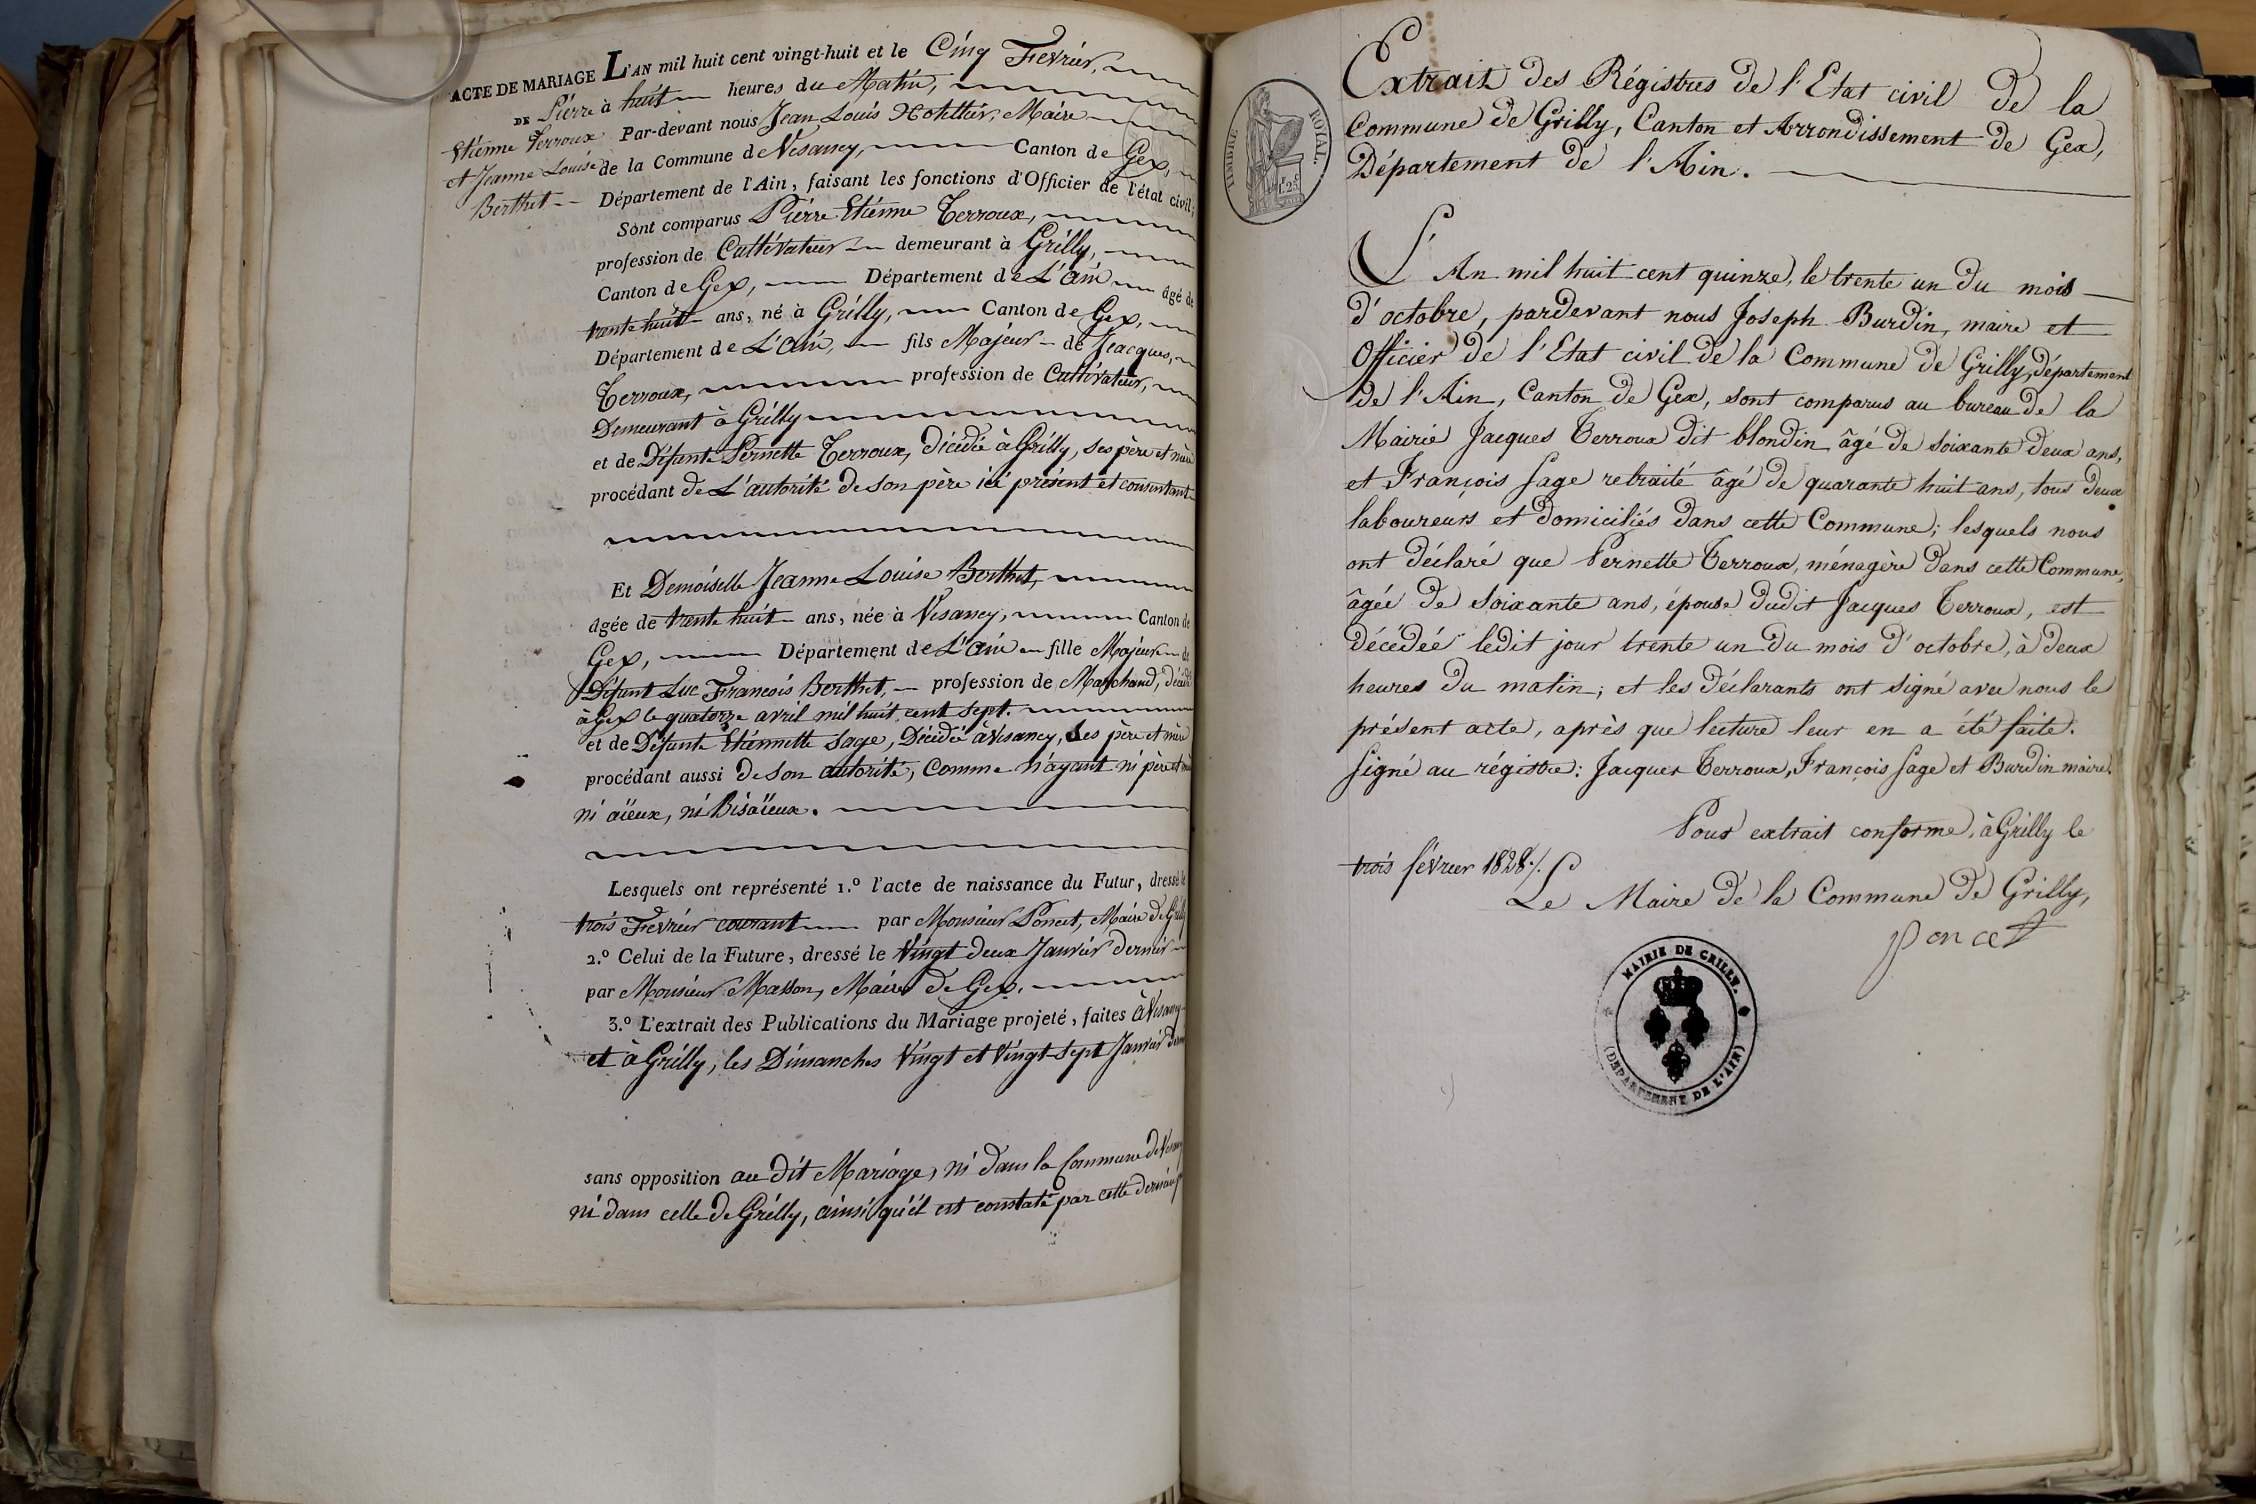 ACTE DE MARIAGE L'AN mil huit cent vingt-huit et le Cinq Fevrier,
DE Pierre à huit heures du Matin,
Etienne Terroux Par-devant nous Jean Louis Maire
et Jeanne Louise de la Commune de Vésancy, Canton de Gex,
Berthet -- Département de l'Ain, faisant les fonctions d'Officier de l'état civil;
Sont comparus Pierre Etienne Terroux,
profession de Cultivateur demeurant à Grilly,
Canton de Gex, Département de L'ain âgé de
trente huit ans, né à Grilly, Canton de Gex,
Département de L'ain, fils Majeur de Jeacques,
Terroux, profession de Cultivateur,
Demeurant à Grilly
et de Défunte Pernette Terroux, décédée à Grilly, ses père et mère
procédant de L'autorité de son père ici présent et consentant
Et Demoiselle Jeanne Louise Berthet,
âgée de trente huit ans, née à Vésancy, Canton de
Gex, Département de L'ain fille Majeure de
Défunt Luc François Berthet, profession de Marchand, décédé
à Gex le quatorze avril mil huit cent sept.
et de Défunte Etiennette Sage, Décédée à Vésancy, Ses père et mère
procédant aussi de son autorité, Comme n'ayant ni père et mère
ni aïeux, ni Bisaïeux.
Lesquels ont représenté 1.º l'acte de naissance du Futur, dressé le
trois Fevrier courant par Monsieur Poncet, Maire de Grilly
2.º Celui de la Future, dressé le Vingt deux Janvier dernier
par Monsieur Masson, Maire de Gex.
3.º L'extrait des Publications du Mariage projeté, faites à Vésancy
et à Grilly, les Dimanches Vingt et Vingt-sept Janvier dernier
sans opposition au dit Mariage, ni dans la Commune de Vésancy
ni dans celle de Grilly, ainsi qu'il est constaté par cette dernière
TIMBRE ROYAL.
1.f 25.c
Extrait des Régistres de l'Etat civil de la
Commune de Grilly, Canton et Arrondissement de Gex,
Département de l'Ain.
L'An mil huit cent quinze, le trente un du mois
d'octobre, pardevant nous Joseph Burdin, maire et
Officier de l'Etat civil de la Commune de Grilly, département
de l'Ain, Canton de Gex, sont comparus au bureau de la
Mairie Jacques Terroux dit blondin âgé de soixante deux ans,
et François Sage retraité âgé de quarante huit ans, tous deux
laboureurs et domiciliés dans cette Commune; lesquels nous
ont déclaré que Pernette Terroux, ménagère dans cette Commune,
âgée de soixante ans, épouse dudit Jacques Terroux, est
décédée ledit jour trente un du mois d'octobre, à deux
heures du matin; et les déclarants ont signé avec nous le
présent acte, après que lecture leur en a été faite.
Signé au régistre: Jacques Terroux, François Sage et Burdin maire.
Pour extrait conforme, à Grilly le
trois février 1828./.
Le Maire de la Commune de Grilly,
Poncet
MAIRIE DE GRILLY.
(DEPARTEMENT DE L'AIN)